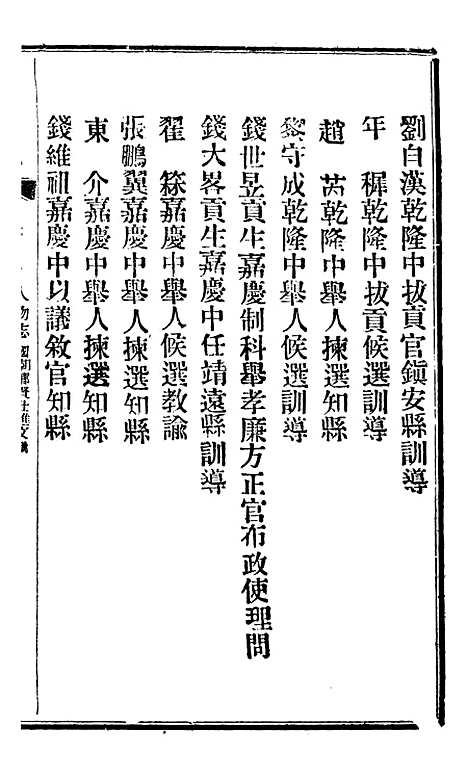 劉白漢乾隆中拔貢官鎭安縣訓導
年　穉乾隆中拔貢候選訓導
趙　芮乾隆中舉人揀選知縣
黎守成乾隆中舉人候選訓導
錢世昱貢生嘉慶制科舉孝廉方正官布政使理問
錢大畧貢生嘉慶中任靖遠縣訓導
翟　𥳑嘉慶中舉人候選教諭
張鵬翼嘉慶中舉人揀選知縣
東　介嘉慶中舉人揀選知縣
錢維祖嘉慶中以議敘官知縣
人物志